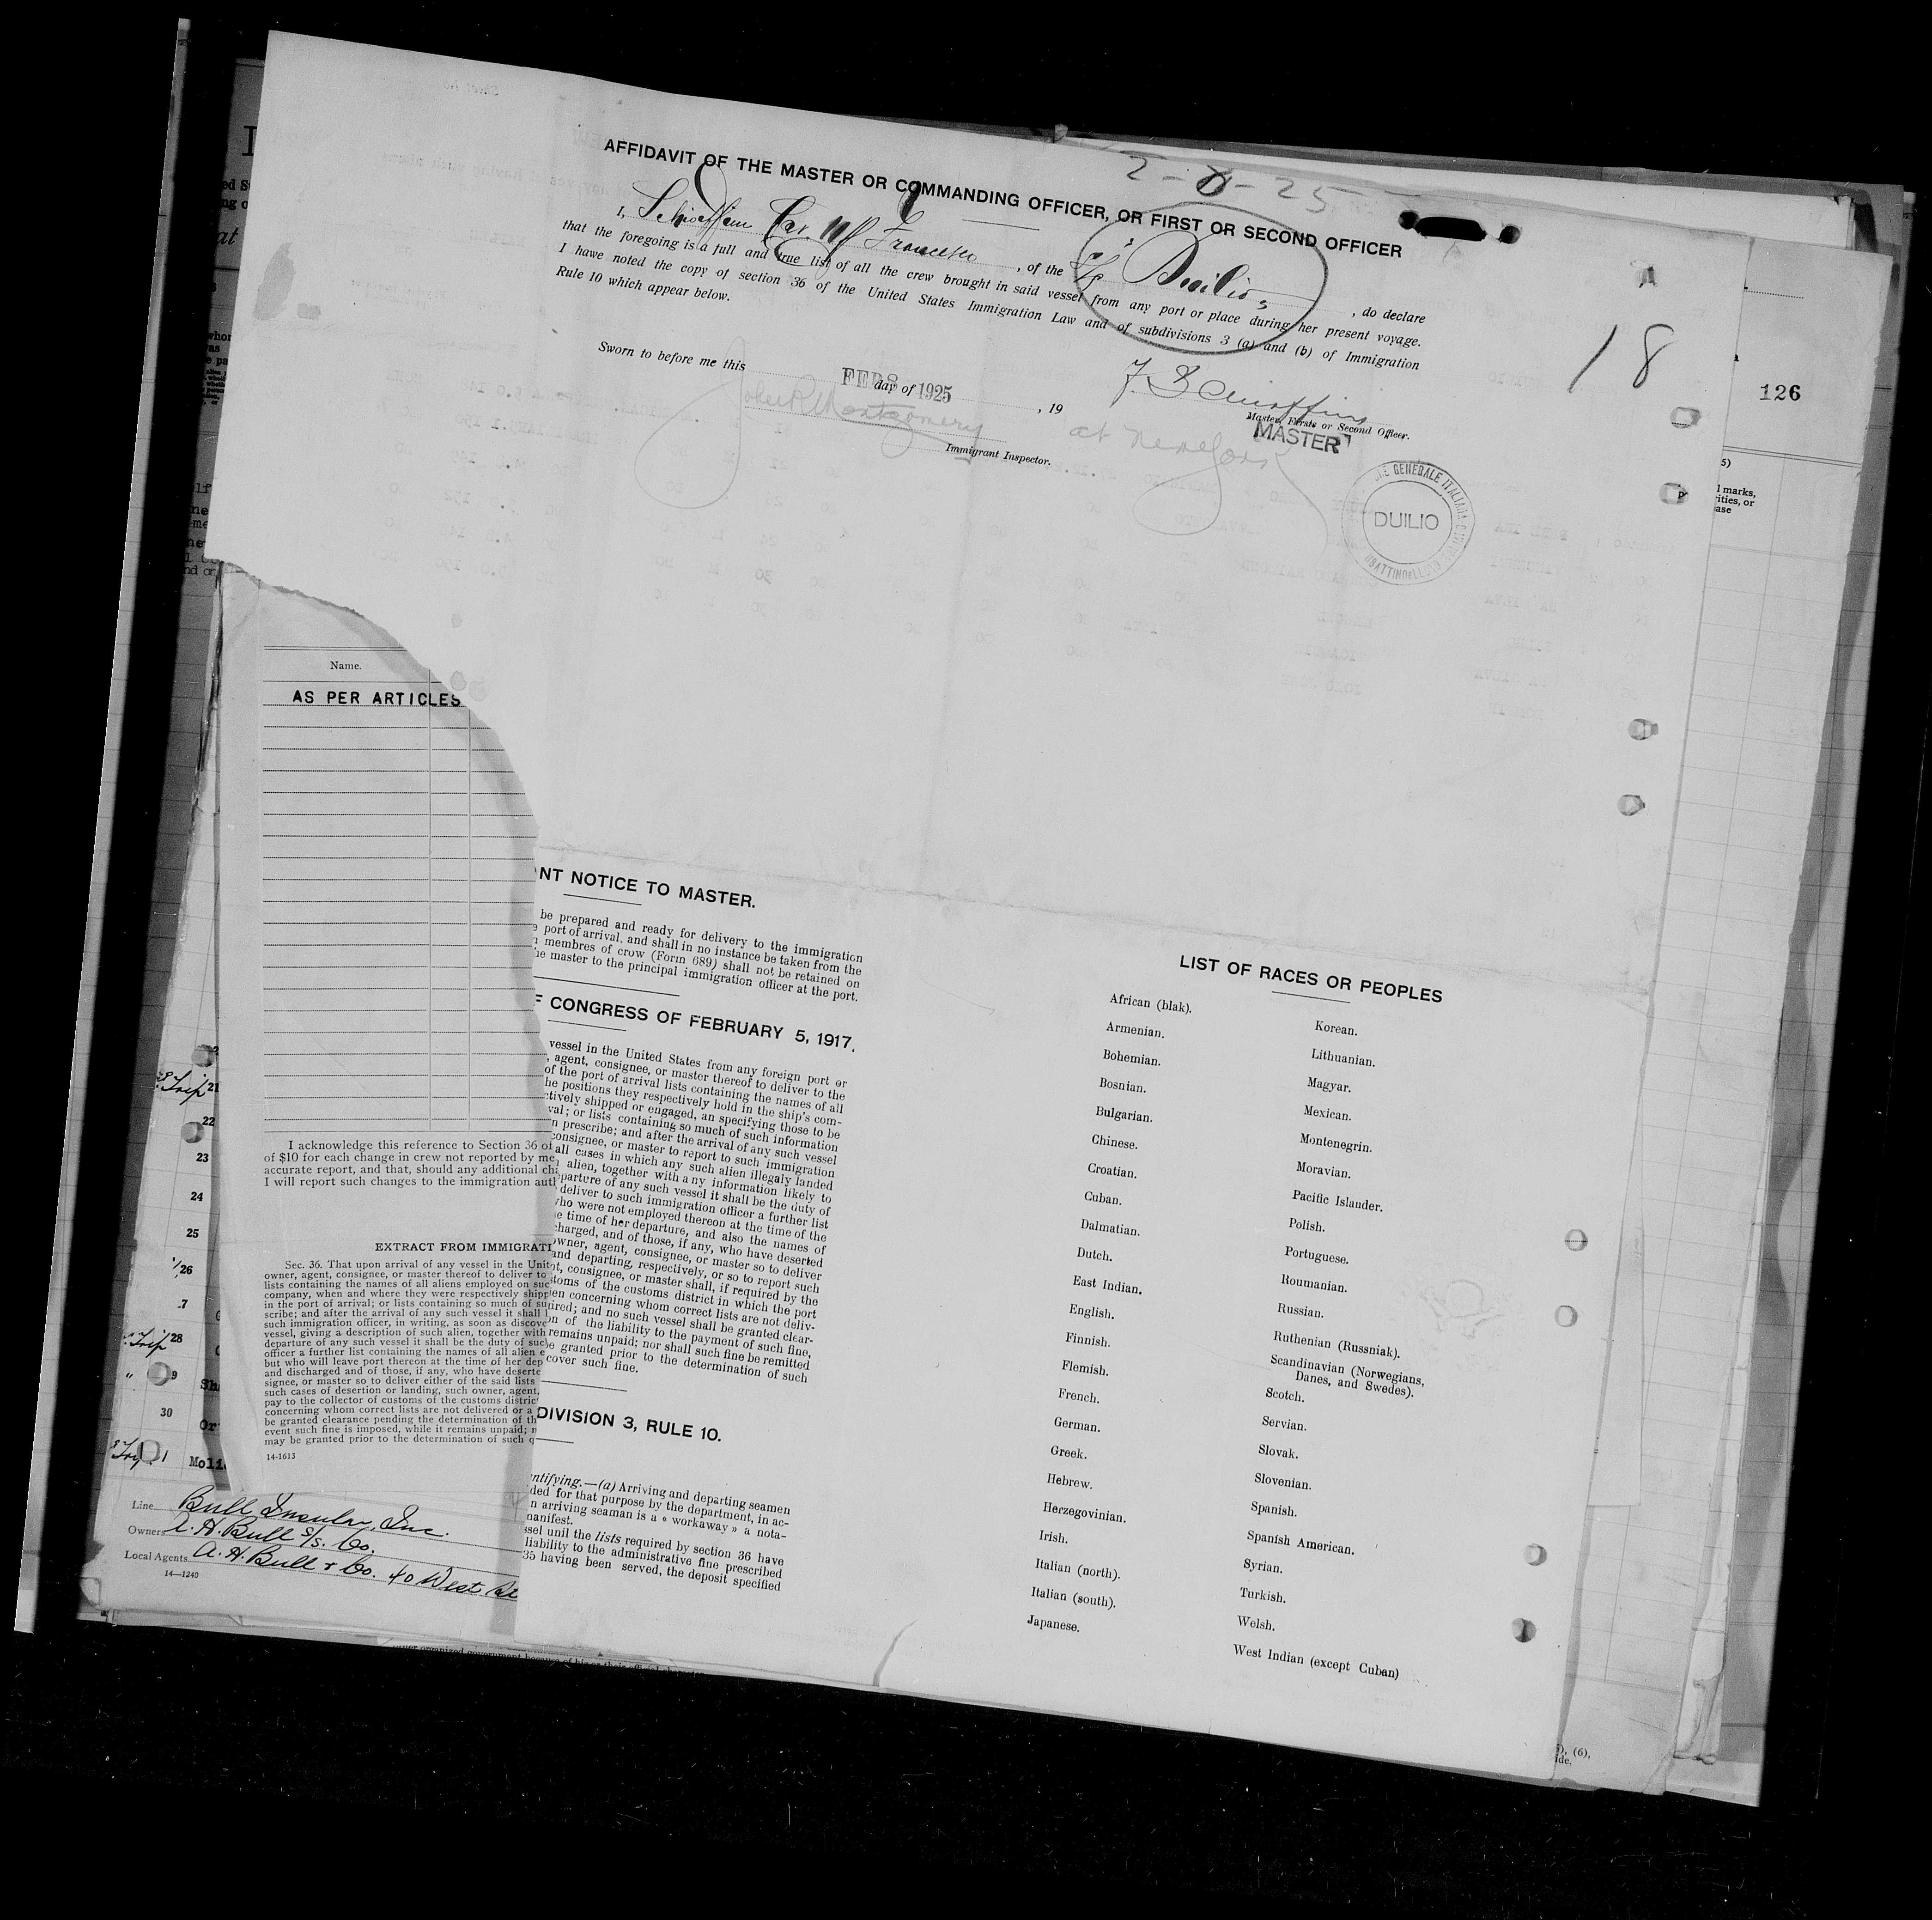 2-8-25
AFFIDAVIT OF THE MASTER OR COMMANDING OFFICER, OR FIRST OR SECOND OFFICER
I, Cav. Francesco , of the S/S Duilio , do declare
that the foregoing is a full and true list of all the crew brought in said vessel from any port or place during her present voyage.
I hawe noted the copy of section 36 of the United States Immigration Law and of subdivisions 3 (a) and (b) of Immigration
Rule 10 which appear below.
18
126
Sworn to before me this FEB 8 day of 1925 , 19
John R Montgomery
Immigrant Inspector.
at New York
Master, Firsts or Second Officer.
MASTER
DUILIO
5)
l marks,
rities, or
ease
Name.
AS PER ARTICLES
I acknowledge this reference to Section 36 of
of $10 for each change in crew not reported by me
accurate report, and that, should any additional cha
I will report such changes to the immigration auth
EXTRACT FROM IMMIGRATI
Sec. 36. That upon arrival of any vessel in the Unit
owner, agent, consignee, or master thereof to deliver to
lists containing the names of all aliens employed on suc
company, when and where they were respectively shipp
in the port of arrival; or lists containing so much of su
scribe; and after the arrival of any such vessel it shall
such immigration officer, in writing, as soon as discove
vessel, giving a description of such alien, together with
departure of any such vessel it shall be the duty of suc
officer a further list containing the names of all alien e
but who will leave port thereon at the time of her dep
and discharged and of those, if any, who have deserte
signee, or master so to deliver either of the said lists
such cases of desertion or landing, such owner, agent,
pay to the collector of customs of the customs distric
concerning whom correct lists are not delivered or a
be granted clearance pending the determination of th
event such fine is imposed, while it remains unpaid; n
may be granted prior to the determination of such q
14-1613
NT NOTICE TO MASTER.
be prepared and ready for delivery to the immigration
e port of arrival, and shall in no instance be taken from the
n membres of crow (Form 689) shall not be retained on
he master to the principal immigration officer at the port.
F CONGRESS OF FEBRUARY 5, 1917.
vessel in the United States from any foreign port or
, agent, consignee, or master thereof to deliver to the
of the port of arrival lists containing the names of all
he positions they respectively hold in the ship's com-
ctively shipped or engaged, an specifying those to be
val; or lists containing so much of such information
n prescribe; and after the arrival of any such vessel
consignee, or master to report to such immigration
all cases in which any such alien illegaly landed
alien, together with any information likely to
parture of any such vessel it shall be the duty of
deliver to such immigration officer a further list
who were not employed thereon at the time of the
e time of her departure, and also the names of
charged, and of those, if any, who have deserted
owner, agent, consignee, or master so to deliver
and departing, respectively, or so to report such
ot, consignee, or master shall, if required by the
toms of the customs district in which the port
en concerning whom correct lists are not deliv-
ired; and no such vessel shall be granted clear-
on of the liability to the payment of such fine,
remains unpaid; nor shall such fine be remitted
be granted prior to the determination of such
cover such fine.
DIVISION 3, RULE 10.
ntifying.—(a) Arriving and departing seamen
ded for that purpose by the department, in ac-
n arriving seaman is a « workaway » a nota-
manifest.
ssel unil the lists required by section 36 have
liability to the administrative fine prescribed
35 having been served, the deposit specified
LIST OF RACES OR PEOPLES
African (blak).
Armenian.
Bohemian.
Bosnian.
Bulgarian.
Chinese.
Croatian.
Cuban.
Dalmatian.
Dutch.
East Indian.
English.
Finnish.
Flemish.
French.
German.
Greek.
Hebrew.
Herzegovinian.
Irish.
Italian (north).
Italian (south).
Japanese.
Korean.
Lithuanian.
Magyar.
Mexican.
Montenegrin.
Moravian.
Pacific Islander.
Polish.
Portuguese.
Roumanian.
Russian.
Ruthenian (Russniak).
Scandinavian (Norwegians,
Danes, and Swedes).
Scotch.
Servian.
Slovak.
Slovenian.
Spanish.
Spanish American.
Syrian.
Turkish.
Welsh.
West Indian (except Cuban)
Trip 21
22
23
24
25
26
28
30
Line Bull Insular, Inc.
Owner A. H. Bull S/S. Co.
Local Agents A. H. Bull & Co. 40 West St
14—1240